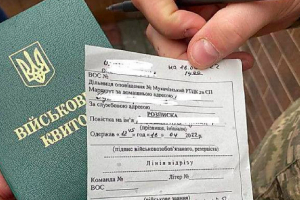 ВІЙСЬКОВИЙ
КВИТОК
ВОС №
Дільниця оповіщення № Мукачівський РТЦК та СП
Маршрут за домашньою адресою
За службовою адресою
РОЗПИСКА
Повістка на ім'я
(прізвище, ініціали)
Одержав
04 2022
(підпис військовозобов'язаного, резервіста)
Лінія відрізу
Команда № Літер №
ВОС